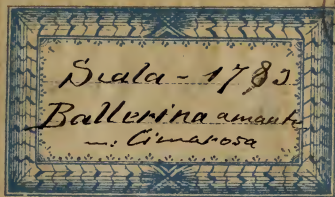 Scala - 1783
Ballerina amante
m: Cimarosa